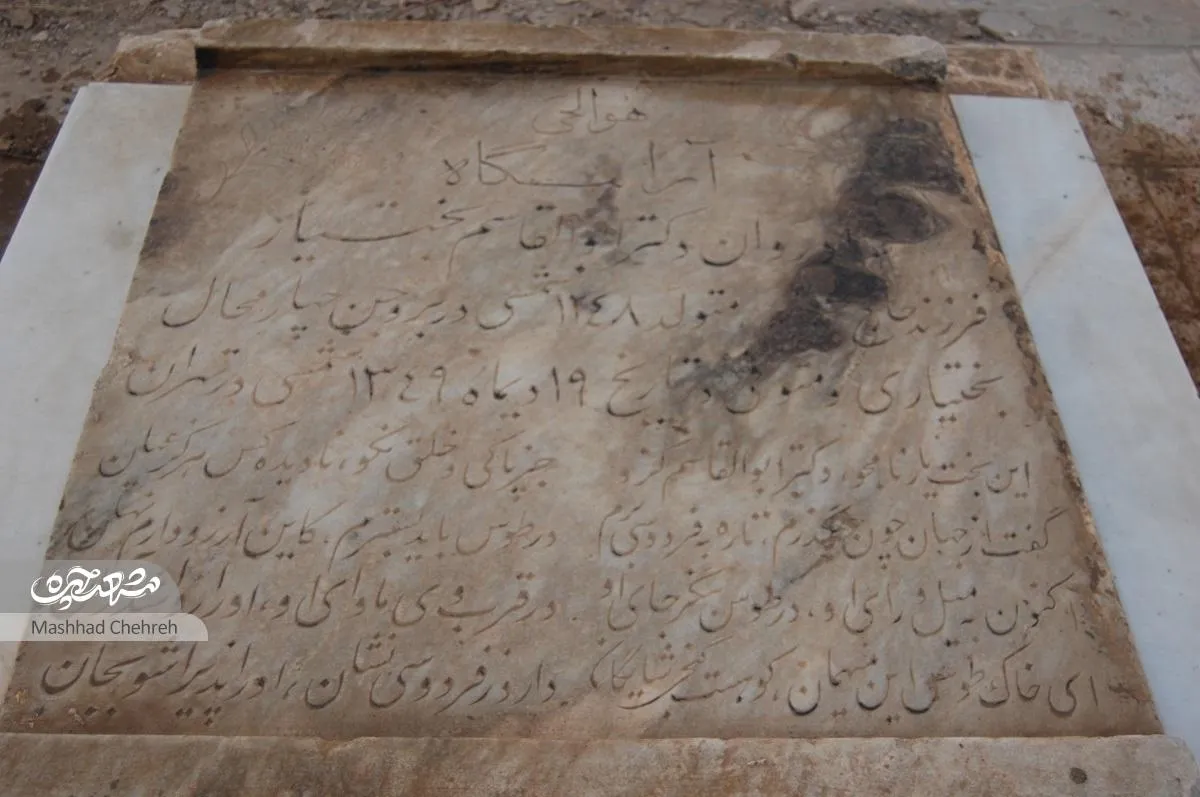 هوالحی
آرامگاه
روان دکتر ابوالقاسم بختیار
فرزند حاج متولد ۱۲٤۸ شمسی در بروجن چهارمحال
بختیاری و متوفی در تاریخ ۱۹ دیماه ۱۳٤۹ شمسی در تهران
این بخت یار نامجو، دکتر ابوالقاسم کزو جز پاکی و خلق نکو، نادیده کس هرگز عیان
گفت از جهان چون بگذرم، تا ره به فردوسی برم در طوس باید بسترم، کاین آرزو دارم نهان
اکنون به میل و رای او، در طوس بنگر جای او در قرب وی ماوای او، او را
ای خاک طوس این میهمان، کوهست گنجی شایگان دارد ز فردوسی نشان، او را پذیرا شو بجان
مشهد چهره
Mashhad Chehreh